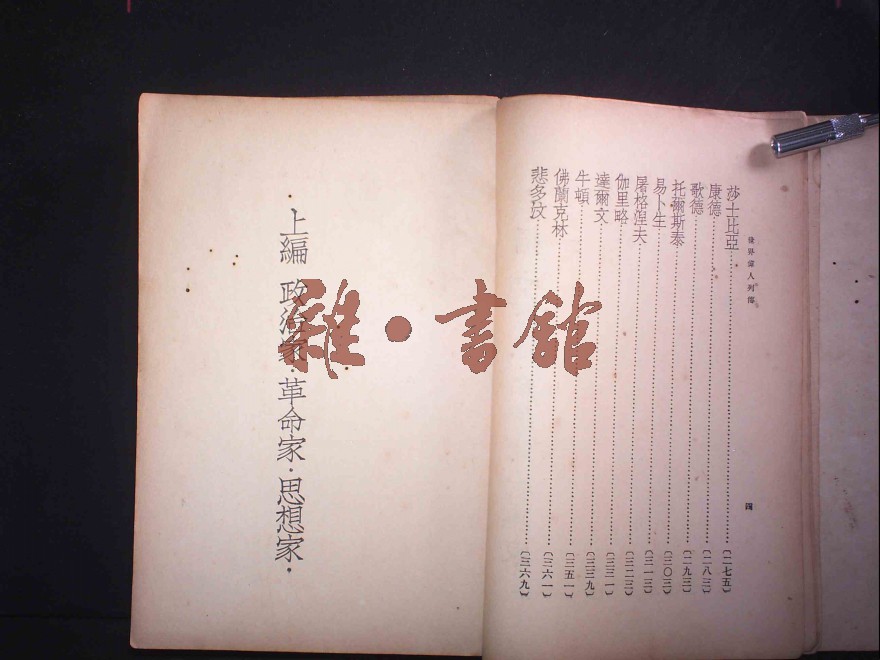 世界偉人列傳
四
莎士比亞……(二七五)
康德……(二八三)
歌德……(二九三)
托爾斯泰……(三〇三)
易卜生……(三一三)
屠格涅夫……(三二三)
伽里略……(三三一)
達爾文……(三三九)
牛頓……(三五一)
佛蘭克林……(三六一)
悲多汶……(三六九)
上編 政治家·革命家·思想家·
雜·書館